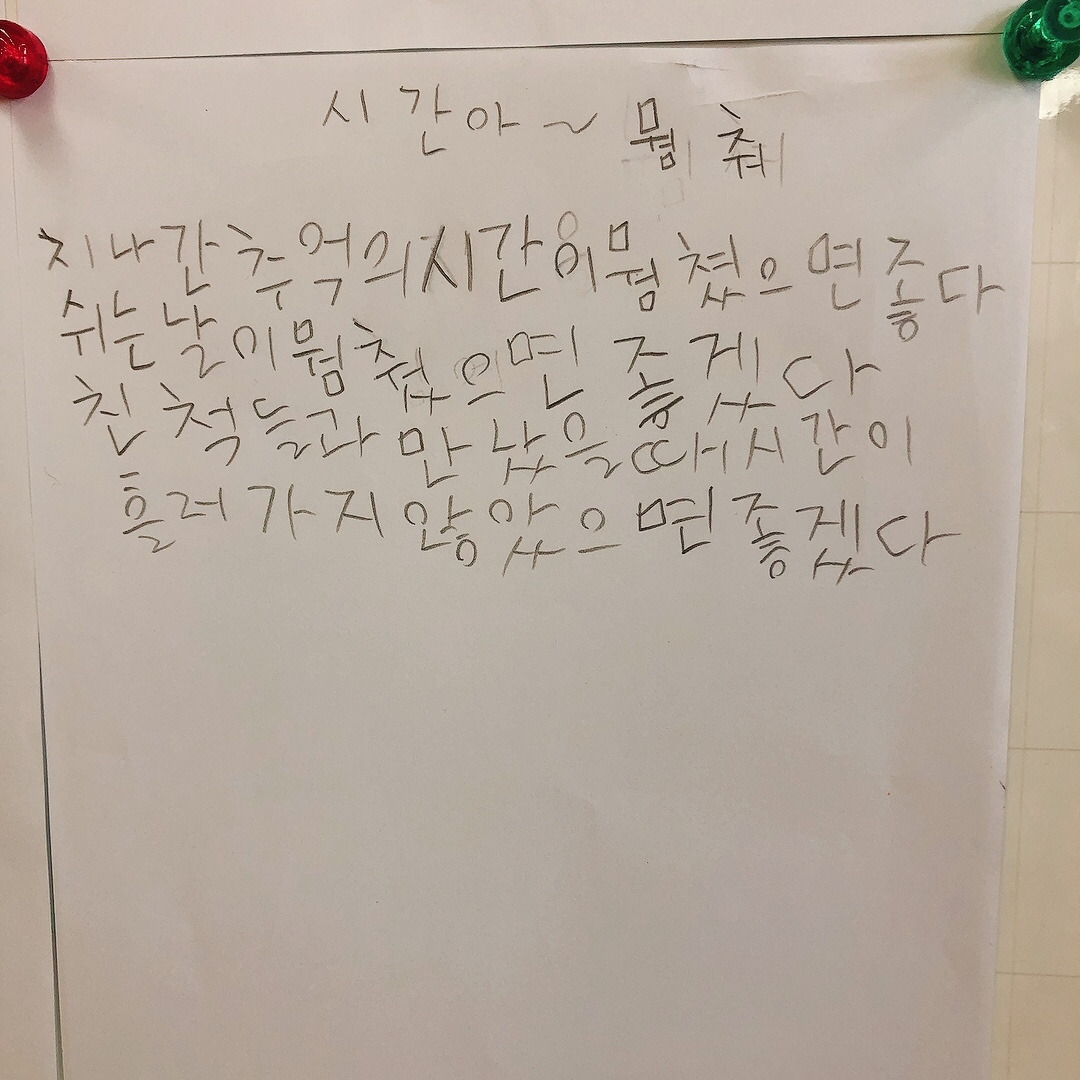 시간아~ 뭠춰
지나간 추억의 시간이 뭠췄으면 좋다
쉬는 날이 뭠췄으면 좋겠다
친척들과 만났을 때 시간이
흘러가지 않았으면 좋겠다